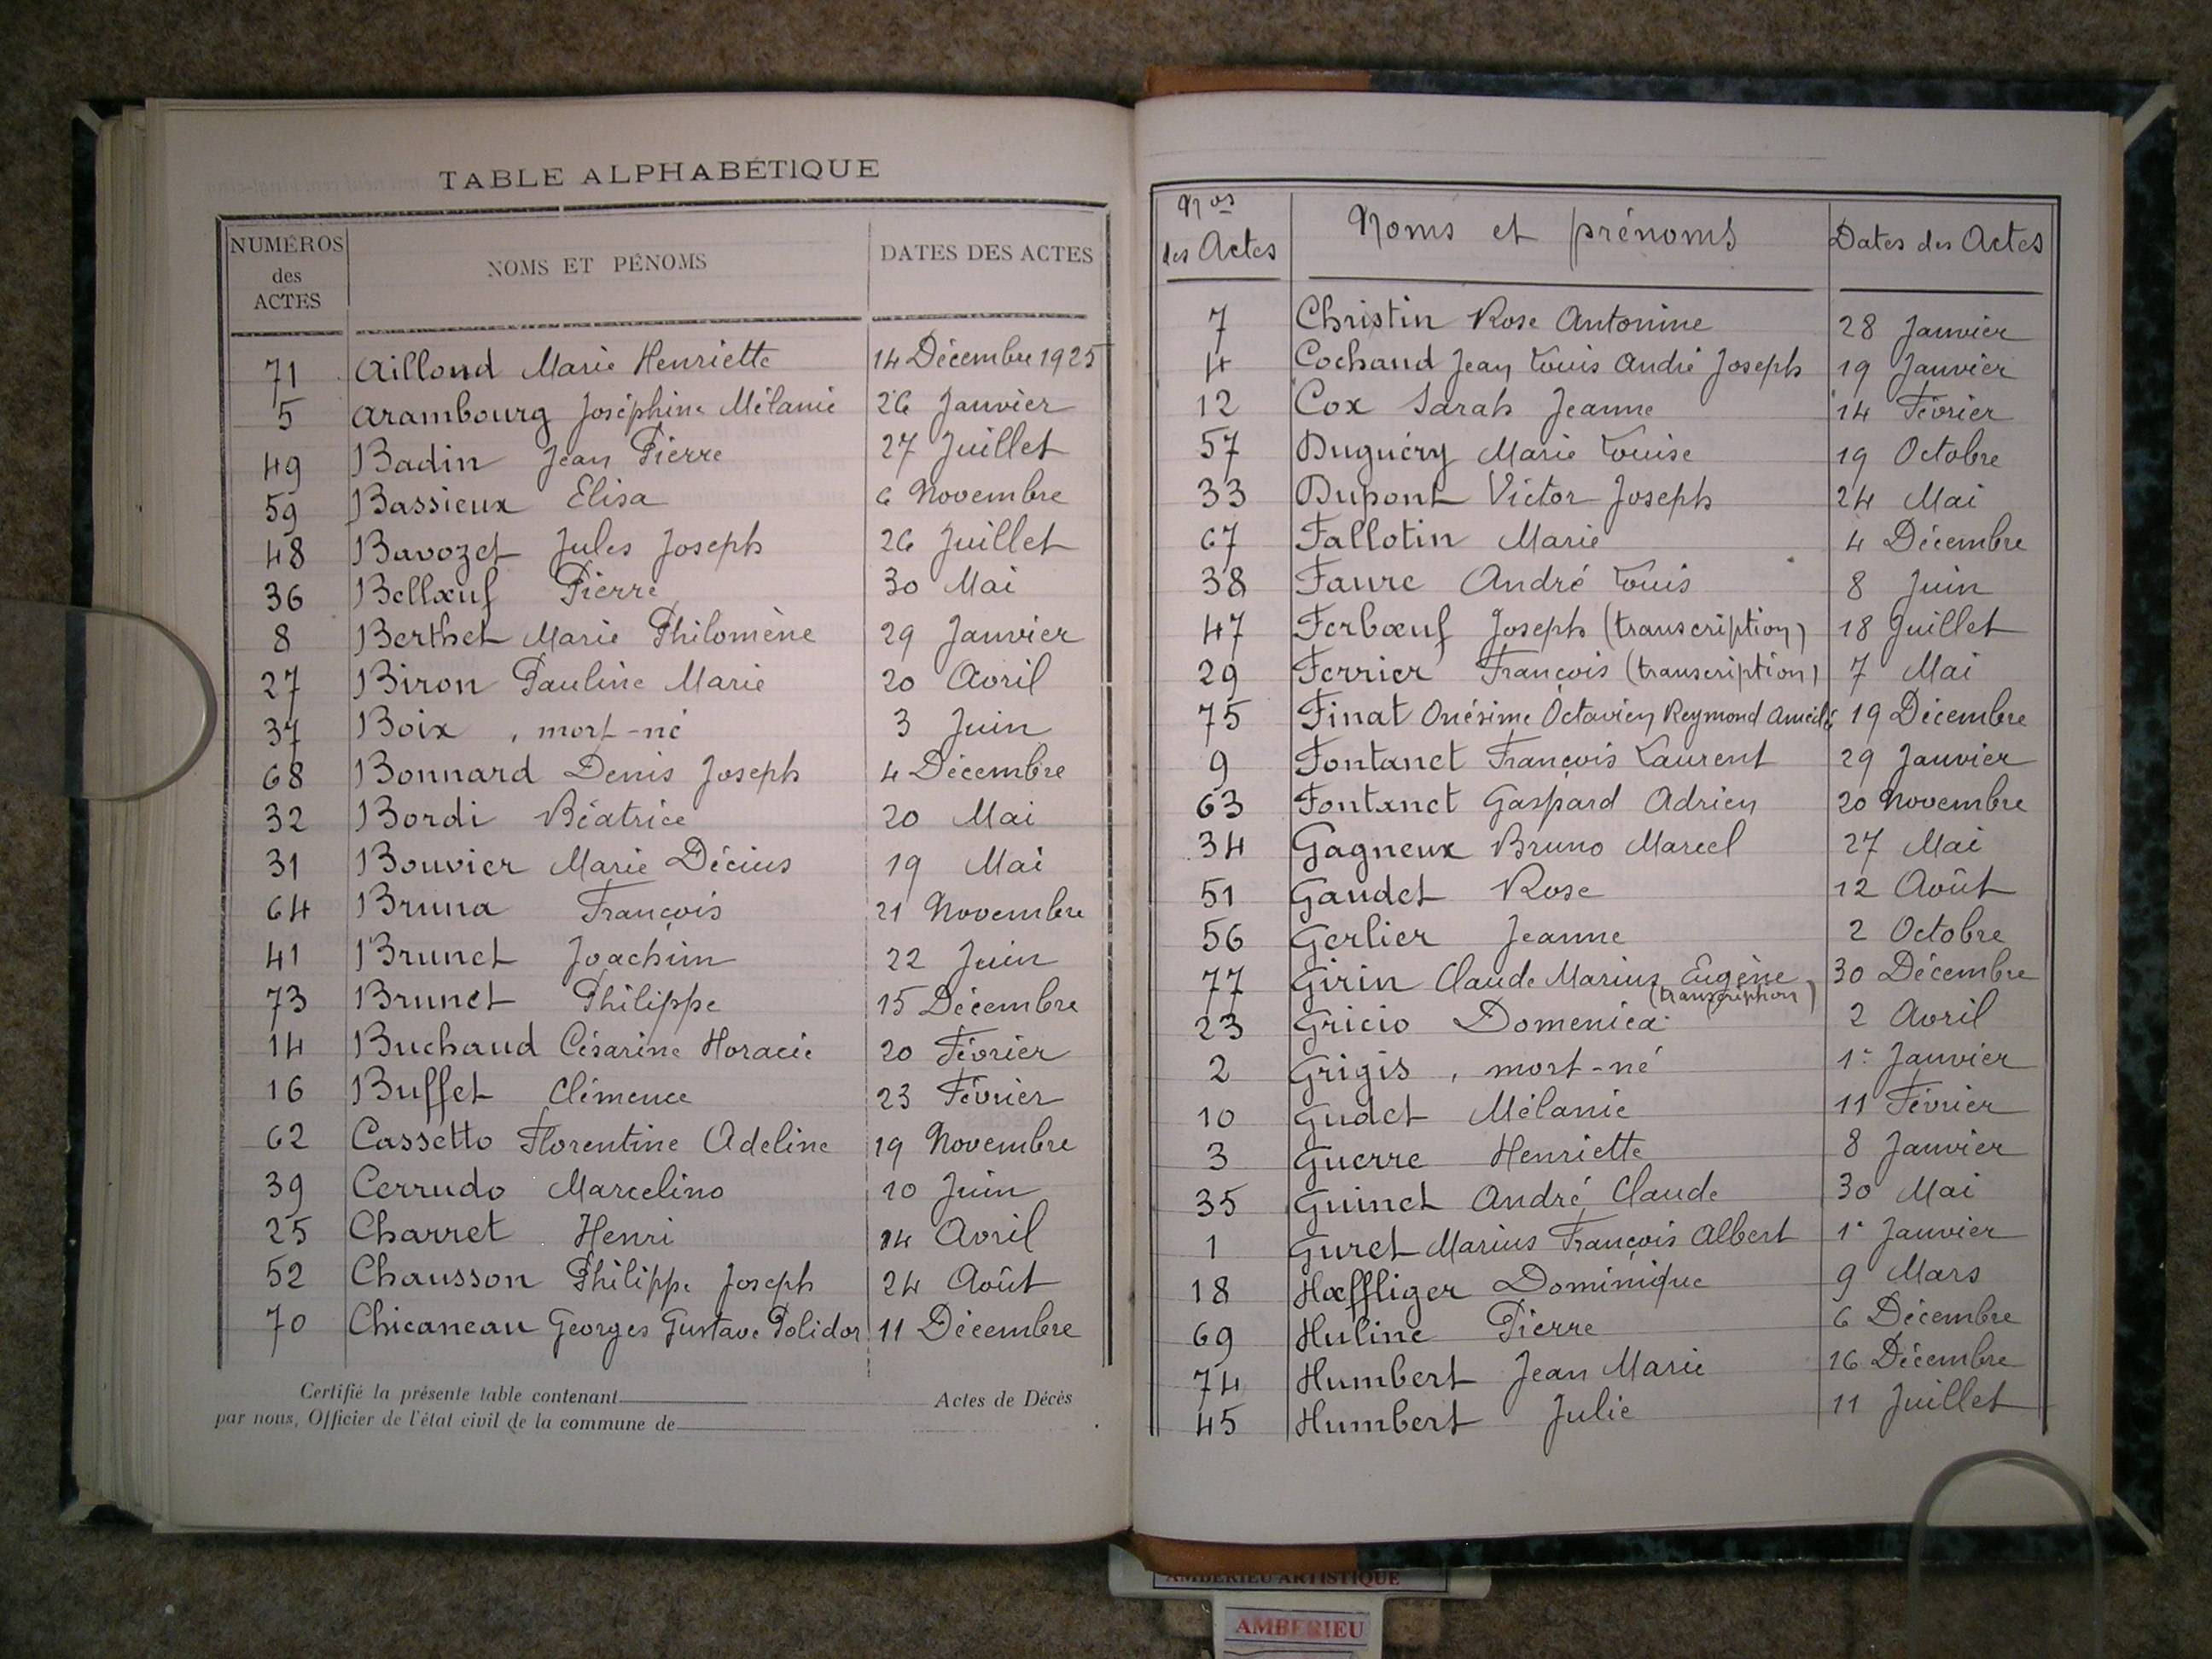 TABLE ALPHABÉTIQUE
NUMÉROS des ACTES NOMS ET PÉNOMS DATES DES ACTES
71 Ailloud Marie Henriette 14 Décembre 1925
5 Arambourg Joséphine Mélanie 26 Janvier
49 Badin Jean Pierre 27 Juillet
59 Bassieux Elisa 6 Novembre
48 Bavozet Jules Joseph 26 Juillet
36 Bellœuf Pierre 30 Mai
8 Berthet Marie Philomène 29 Janvier
27 Biron Pauline Marie 20 Avril
37 Boix , mort-né 3 Juin
68 Bonnard Denis Joseph 4 Décembre
32 Bordi Béatrice 20 Mai
31 Bouvier Marie Décius 19 Mai
64 Bruna François 21 Novembre
41 Brunet Joachim 22 Juin
73 Brunet Philippe 15 Décembre
14 Buchaud Césarine Horacie 20 Février
16 Buffet Clémence 23 Février
62 Cassetto Florentine Adeline 19 Novembre
39 Cerrudo Marcelino 10 Juin
25 Charret Henri 14 Avril
52 Chausson Philippe Joseph 24 Août
70 Chicaneau Georges Gustave Polidor 11 Décembre
Certifié la présente table contenant Actes de Décès
par nous, Officier de l'état civil de la commune de
Nos des Actes Noms et prénoms Dates des Actes
7 Christin Rose Antonine 28 Janvier
4 Cochaud Jean Louis André Joseph 19 Janvier
12 Cox Sarah Jeanne 14 Février
57 Duguéry Marie Louise 19 Octobre
33 Dupont Victor Joseph 24 Mai
67 Fallotin Marie 4 Décembre
38 Faure André Louis 8 Juin
47 Ferbœuf Joseph (transcription) 18 Juillet
29 Ferrier François (transcription) 7 Mai
75 Finat Onésime Octavien Reymond Amédé 19 Décembre
9 Fontanet François Laurent 29 Janvier
63 Fontanet Gaspard Adrien 20 Novembre
34 Gagneux Bruno Marcel 27 Mai
51 Gaudet Rose 12 Août
56 Gerlier Jeanne 2 Octobre
77 Girin Claude Marius Eugène 30 Décembre
(transcription)
23 Gricio Domenica 2 Avril
2 Grigis , mort-né 1er Janvier
10 Gudet Mélanie 11 Février
3 Guerre Henriette 8 Janvier
35 Guinet André Claude 30 Mai
1 Guret Marius François Albert 1er Janvier
18 Hœffliger Dominique 9 Mars
69 Huline Pierre 6 Décembre
74 Humbert Jean Marie 16 Décembre
45 Humbert Julie 11 Juillet
AMBERIEU ARTISTIQUE
AMBERIEU